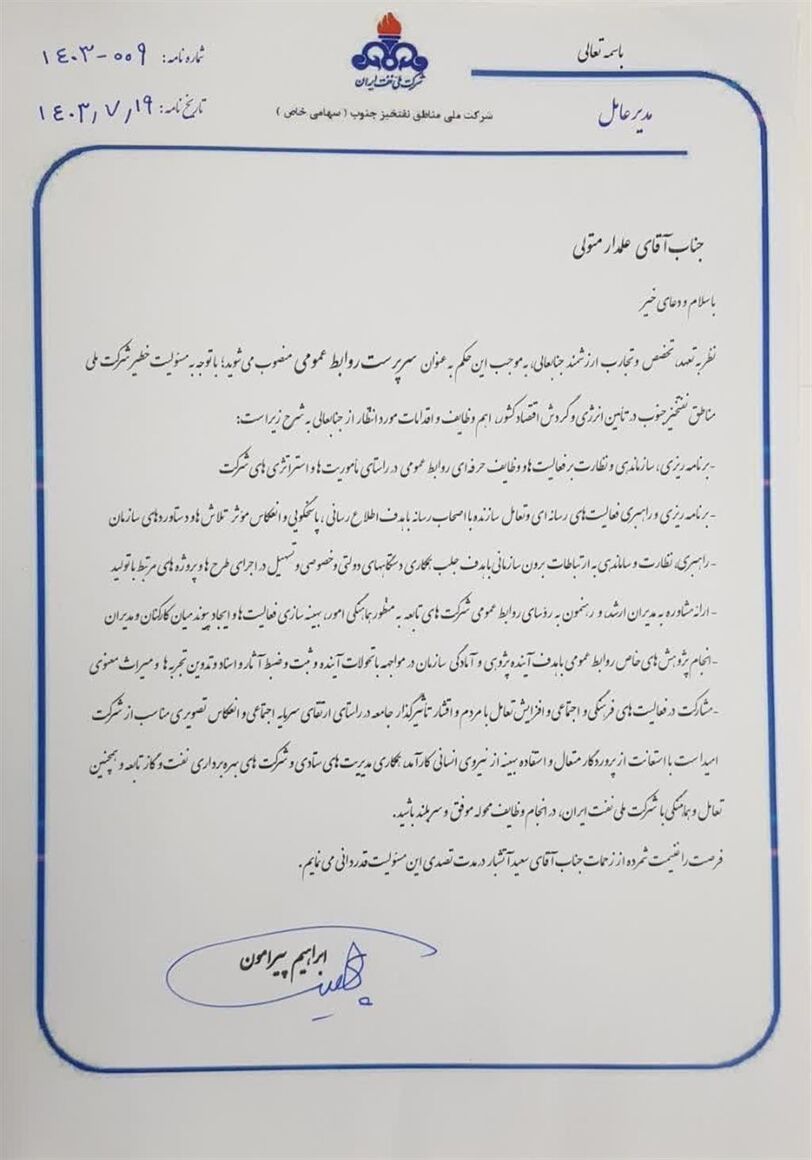 باسمه تعالی
شرکت ملی نفت ایران
شماره نامه: ۱۴۰۳-۰۰۹
مدیرعامل
شرکت ملی مناطق نفتخیز جنوب (سهامی خاص)
تاریخ نامه: ۱۴۰۳٫۷٫۱۹
جناب آقای علمدار متولی
باسلام و دعای خیر
نظر به تعهد، تخصص و تجارب ارزشمند جنابعالی، به موجب این حکم به عنوان سرپرست روابط عمومی منصوب می شوید؛ با توجه به مسئولیت خطیر شرکت ملی
مناطق نفتخیز جنوب در تأمین انرژی و گردش اقتصاد کشور، اهم وظایف و اقدامات مورد انتظار از جنابعالی به شرح زیر است:
-برنامه ریزی، سازماندهی و نظارت بر فعالیت ها و وظایف حرفه ای روابط عمومی در راستای مأموریت ها و استراتژی های شرکت
-برنامه ریزی و راهبری فعالیت های رسانه ای و تعامل سازنده با اصحاب رسانه با هدف اطلاع رسانی ، پاسخگویی و انعکاس مؤثر تلاش ها و دستاوردهای سازمان
-راهبری، نظارت و ساماندهی به ارتباطات برون سازمانی با هدف جلب همکاری دستگاههای دولتی و خصوصی و تسهیل در اجرای طرح ها و پروژه های مرتبط با تولید
-ارائه مشاوره به مدیران ارشد، و رهنمون به رؤسای روابط عمومی شرکت های تابعه به منظور هماهنگی امور، بهینه سازی فعالیت ها و ایجاد پیوند میان کارکنان و مدیران
-انجام پژوهش های خاص روابط عمومی با هدف آینده پژوهی و آمادگی سازمان در مواجهه با تحولات آینده و ثبت و ضبط آثار و اسناد و تدوین تجربه ها و میراث معنوی
-مشارکت در فعالیت های فرهنگی و اجتماعی و افزایش تعامل با مردم و اقشار تأثیرگذار جامعه در راستای ارتقای سرمایه اجتماعی و انعکاس تصویری مناسب از شرکت
امید است با استعانت از پروردگار متعال و استفاده بهینه از نیروی انسانی کارآمد، همکاری مدیریت های ستادی و شرکت های بهره برداری نفت و گاز تابعه و همچنین
تعامل و هماهنگی با شرکت ملی نفت ایران، در انجام وظایف محوله موفق و سربلند باشید.
فرصت را غنیمت شمرده از زحمات جناب آقای سعید آتشبار در مدت تصدی این مسئولیت قدردانی می نمایم.
ابراهیم پیرامون